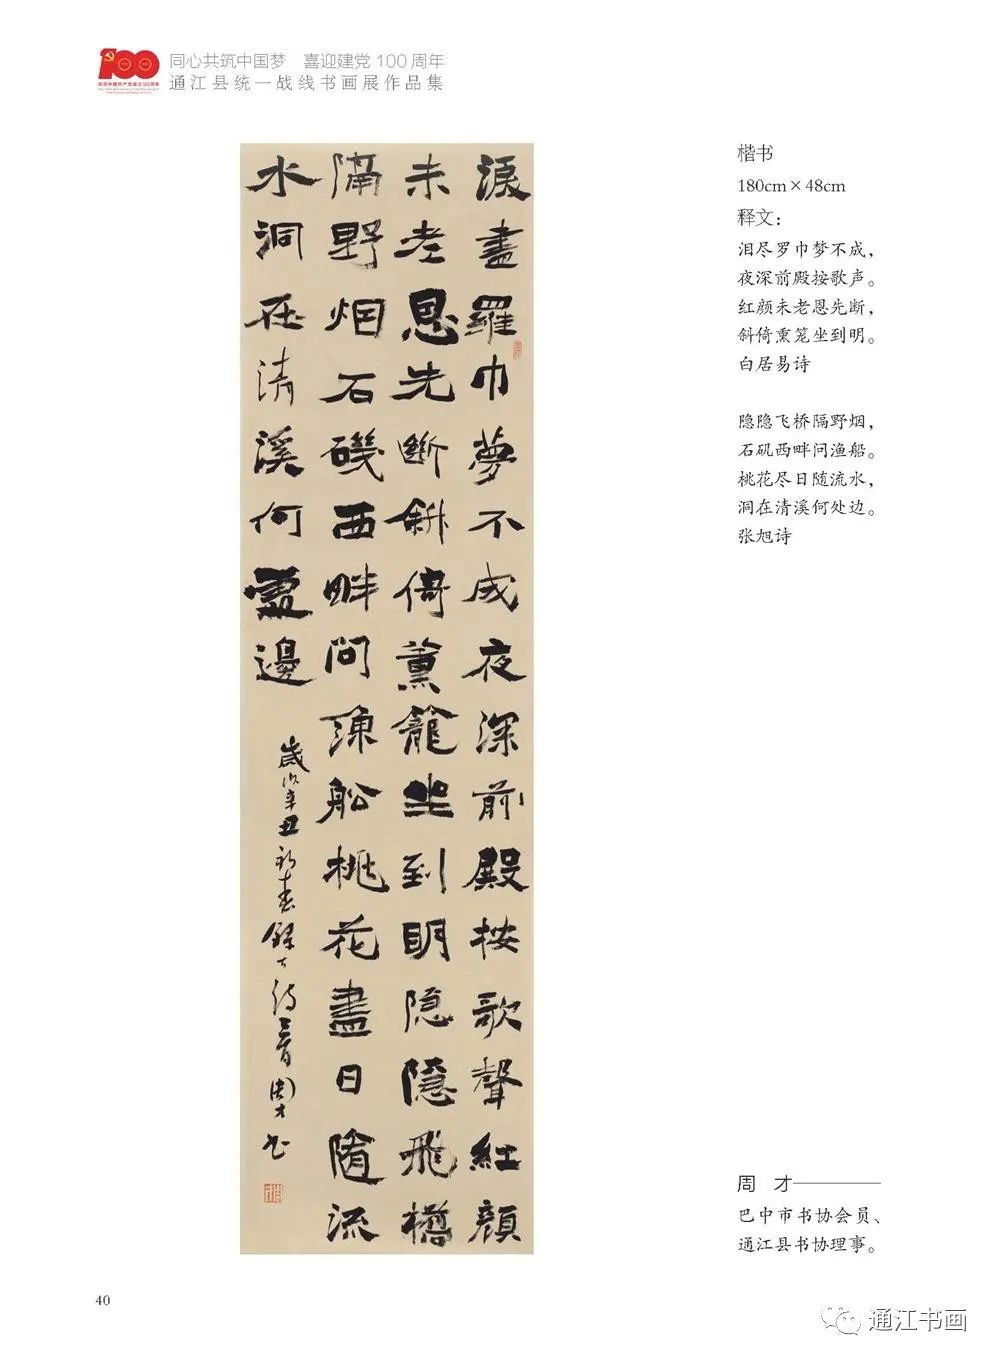 同心共筑中国梦 喜迎建党100周年
通江县统一战线书画展作品集
淚盡羅巾夢不成夜深前殿按歌聲紅顏
未老恩先斷斜倚薰籠坐到明隐隱飛橋
隔野烟石磯西畔问漁船桃花盡日隨流
水洞在清溪何處邊
歲次辛丑初春錄古詩二首周才书
楷书
180cm×48cm
释文：
泪尽罗巾梦不成，
夜深前殿按歌声。
红颜未老恩先断，
斜倚熏笼坐到明。
白居易诗
隐隐飞桥隔野烟，
石矶西畔问渔船。
桃花尽日随流水，
洞在清溪何处边。
张旭诗
周 才
巴中市书协会员、
通江县书协理事。
40
通江书画